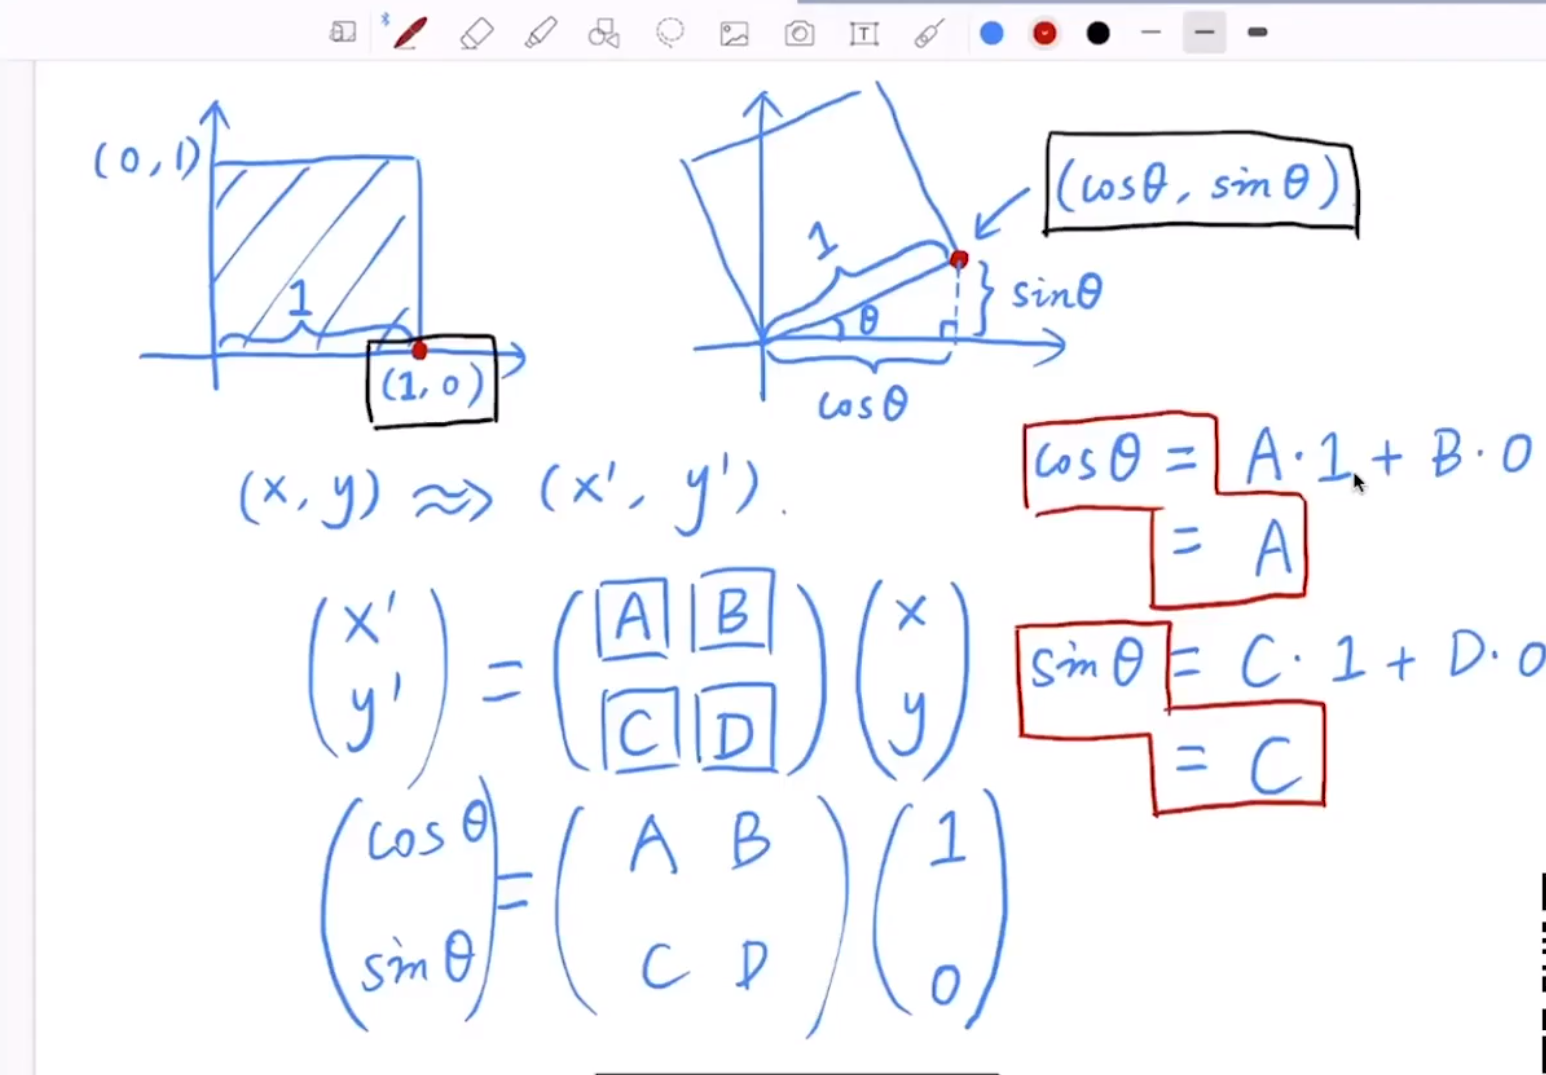 T
(0, 1)
1
(1, 0)
1
θ
(cosθ, sinθ)
sinθ
cosθ
(x, y) ⇝ (x', y').
(x' y') = (A B C D) (x y)
(cosθ sinθ) = (A B C D) (1 0)
cosθ = A·1 + B·0
= A
sinθ = C·1 + D·0
= C